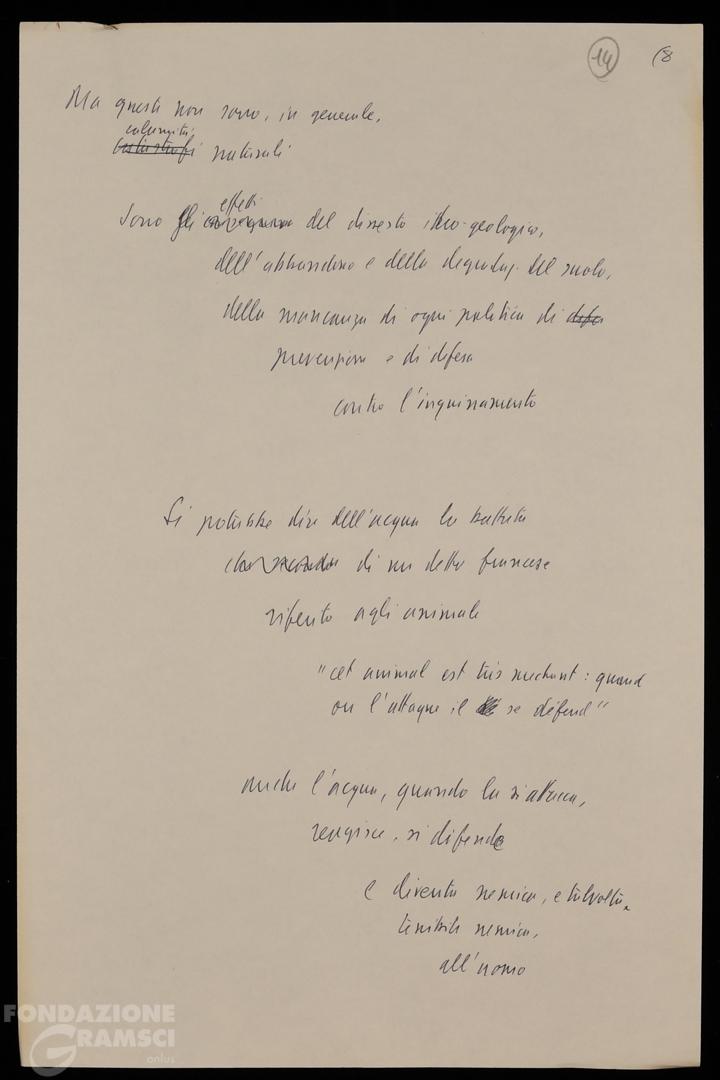 14 (8
Ma questi non sono, in generale,
calamità
catastrofi naturali
effetti
Sono gli del dissesto idro-geologico,
dell'abbandono e della degradaz. del suolo,
della mancanza di ogni politica di difesa
prevenzione e di difesa
contro l'inquinamento
Si potrebbe dire dell'acqua la battuta
di un detto francese
riferito agli animale
"cet animal est très mechant : quand
on l'attaque il se défend"
anche l'acqua, quando la si attacca,
reagisce, si difende
e diventa nemica, e talvolta
terribile nemica,
all'uomo
FONDAZIONE
GRAMSCI
onlus